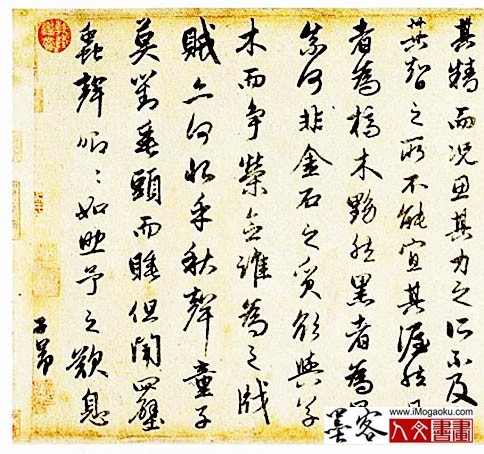 其精而況思其力之所不及
其智之所不能宜其渥然
者為槁木黟然黑者為
奈何非金石之質欲與草
木而爭榮念誰為之戕
賊亦何恨乎秋聲童子
莫對垂頭而睡但聞四壁
蟲聲唧〻如助予之歎息
子昂
墨客
www.iMogaoku.com
人文書畫